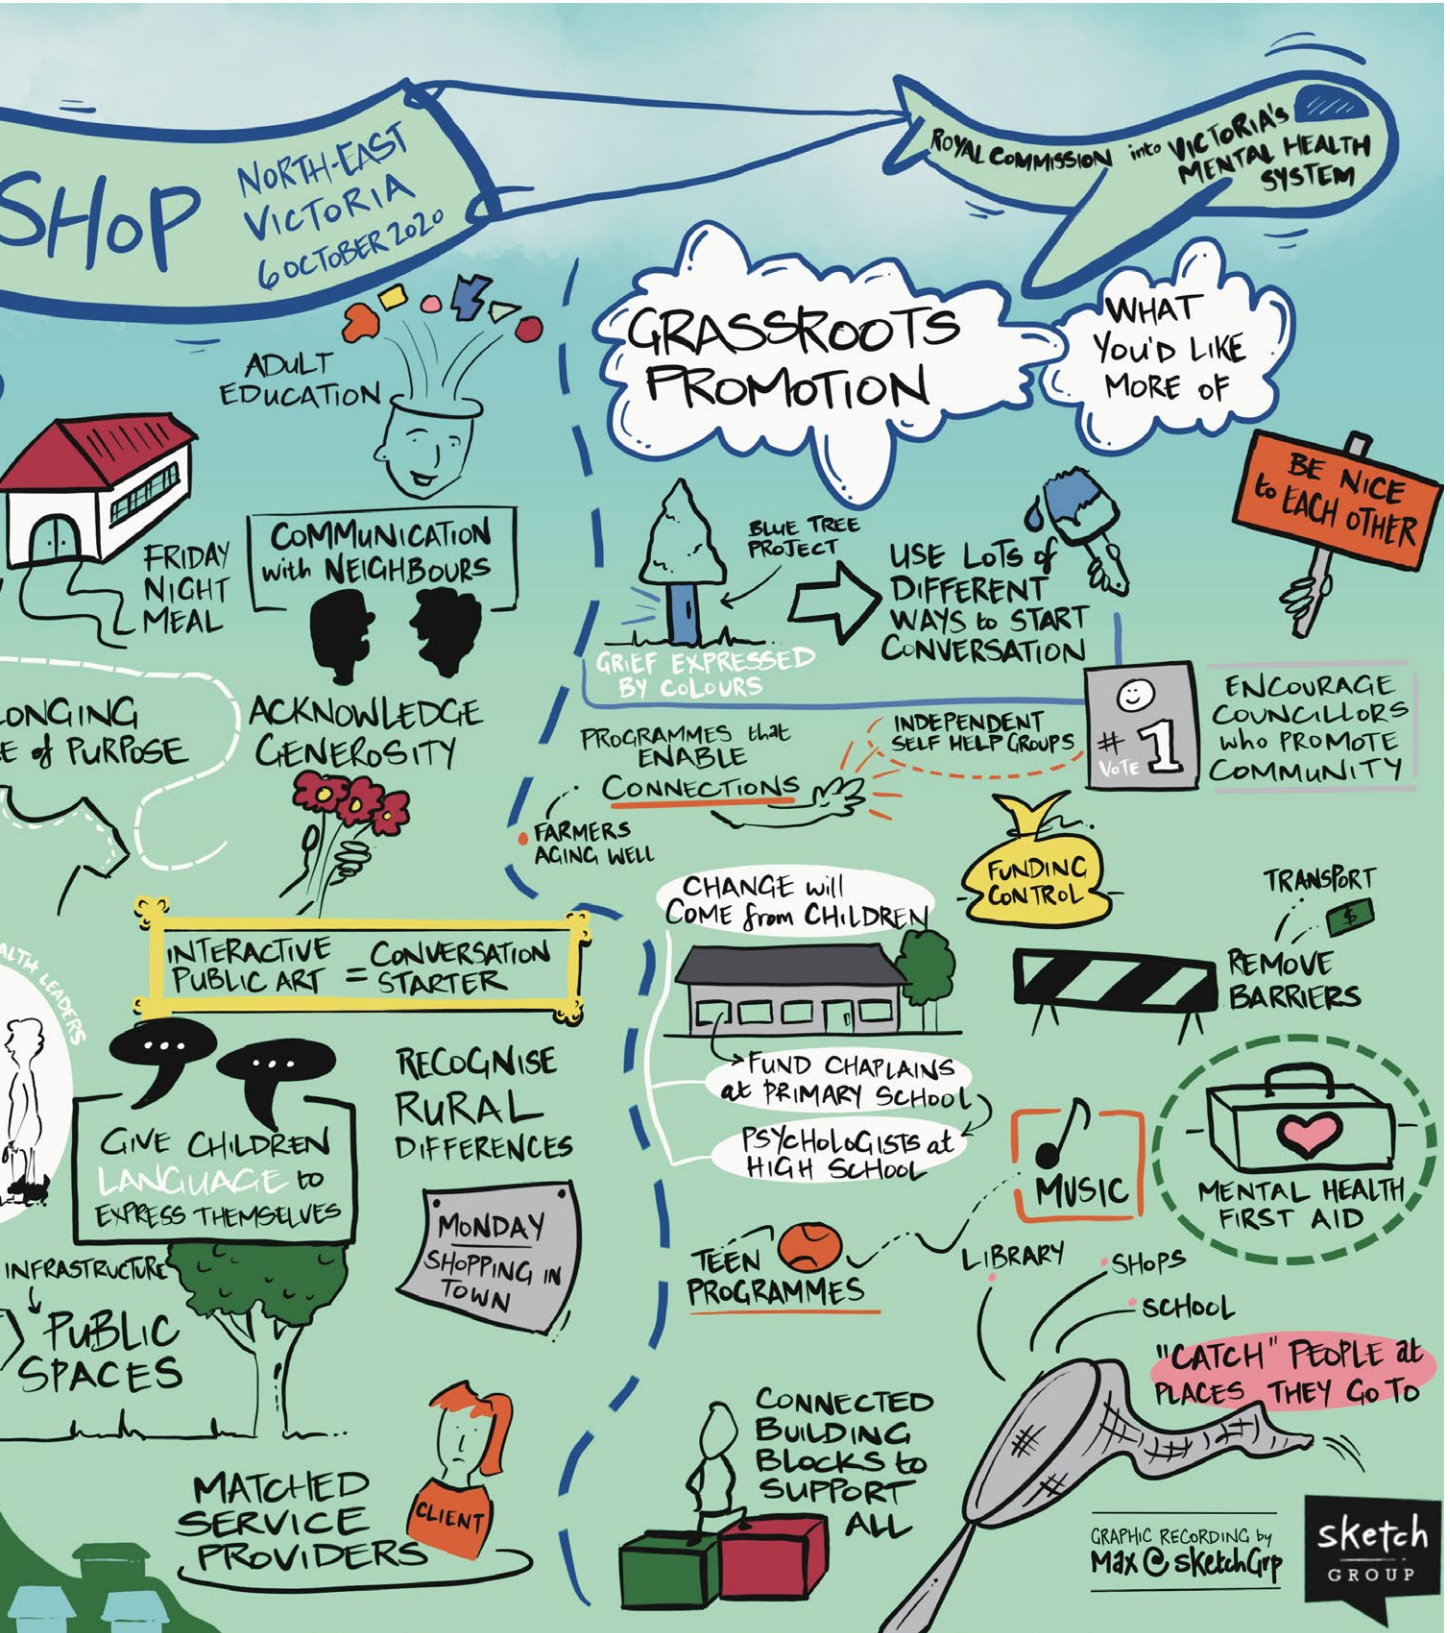 SHOP
NORTH-EAST
VICTORIA
6 OCTOBER 2020
ROYAL COMMISSION into VICTORIA'S
MENTAL HEALTH
SYSTEM
ADULT
EDUCATION
FRIDAY
NIGHT
MEAL
COMMUNICATION
with NEIGHBOURS
ONGING
of PURPOSE
ACKNOWLEDGE
GENEROSITY
INTERACTIVE
PUBLIC ART
=
CONVERSATION
STARTER
LEADERS
GIVE CHILDREN
LANGUAGE to
EXPRESS THEMSELVES
RECOGNISE
RURAL
DIFFERENCES
MONDAY
SHOPPING IN
TOWN
INFRASTRUCTURE
PUBLIC
SPACES
MATCHED
SERVICE
PROVIDERS
CLIENT
GRASSROOTS
PROMOTION
WHAT
YOU'D LIKE
MORE OF
BE NICE
to EACH OTHER
BLUE TREE
PROJECT
GRIEF EXPRESSED
BY COLOURS
USE LOTS of
DIFFERENT
WAYS to START
CONVERSATION
PROGRAMMES that
ENABLE
CONNECTIONS
FARMERS
AGING WELL
INDEPENDENT
SELF HELP GROUPS
# 1
VOTE
ENCOURAGE
COUNCILLORS
who PROMOTE
COMMUNITY
FUNDING
CONTROL
TRANSPORT
$
REMOVE
BARRIERS
CHANGE will
COME from CHILDREN
FUND CHAPLAINS
at PRIMARY SCHOOL
PSYCHOLOGISTS at
HIGH SCHOOL
MUSIC
TEEN
PROGRAMMES
MENTAL HEALTH
FIRST AID
LIBRARY
SHOPS
SCHOOL
"CATCH" PEOPLE at
PLACES THEY GO TO
CONNECTED
BUILDING
BLOCKS to
SUPPORT
ALL
GRAPHIC RECORDING by
Max @ SketchGrp
sketch
GROUP